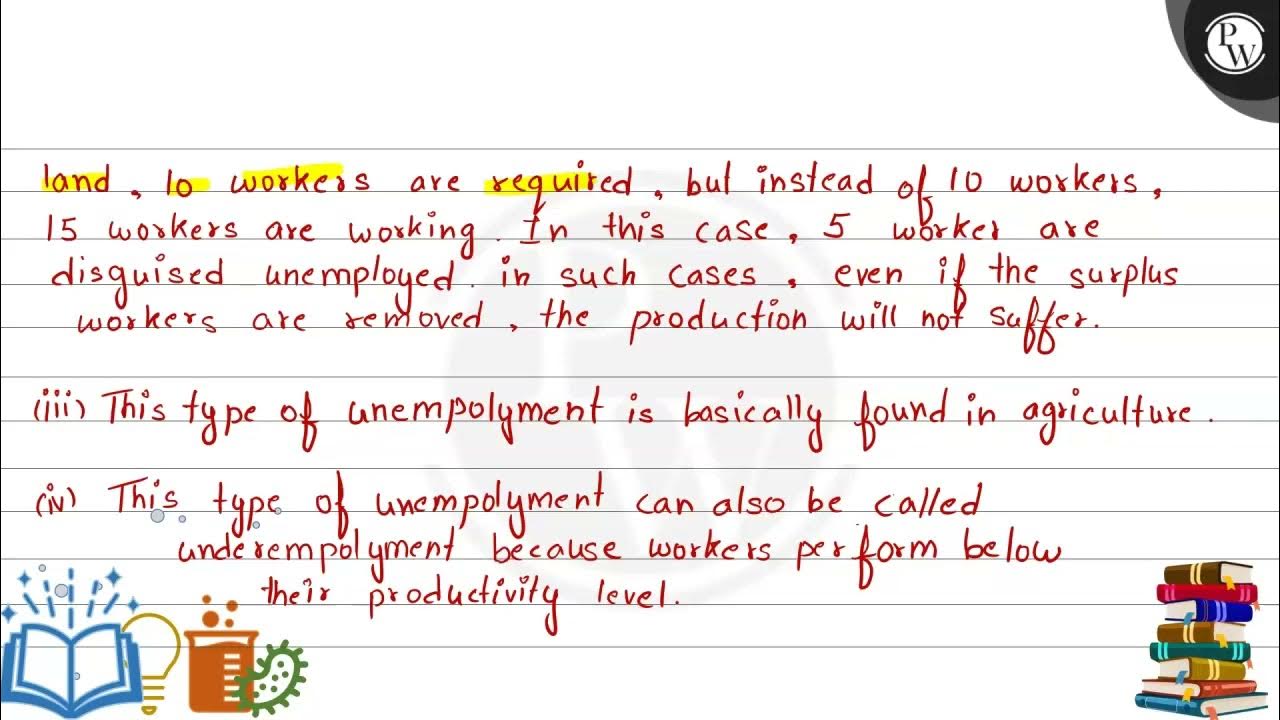 PW
land, 10 workers are required, but instead of 10 workers,
15 workers are working. In this case, 5 worker are
disguised unemployed. in such cases, even if the surplus
workers are removed, the production will not suffer.
(iii) This type of unempolyment is basically found in agriculture.
(iv) This type of unempolyment can also be called
underempolyment because workers perform below
their productivity level.